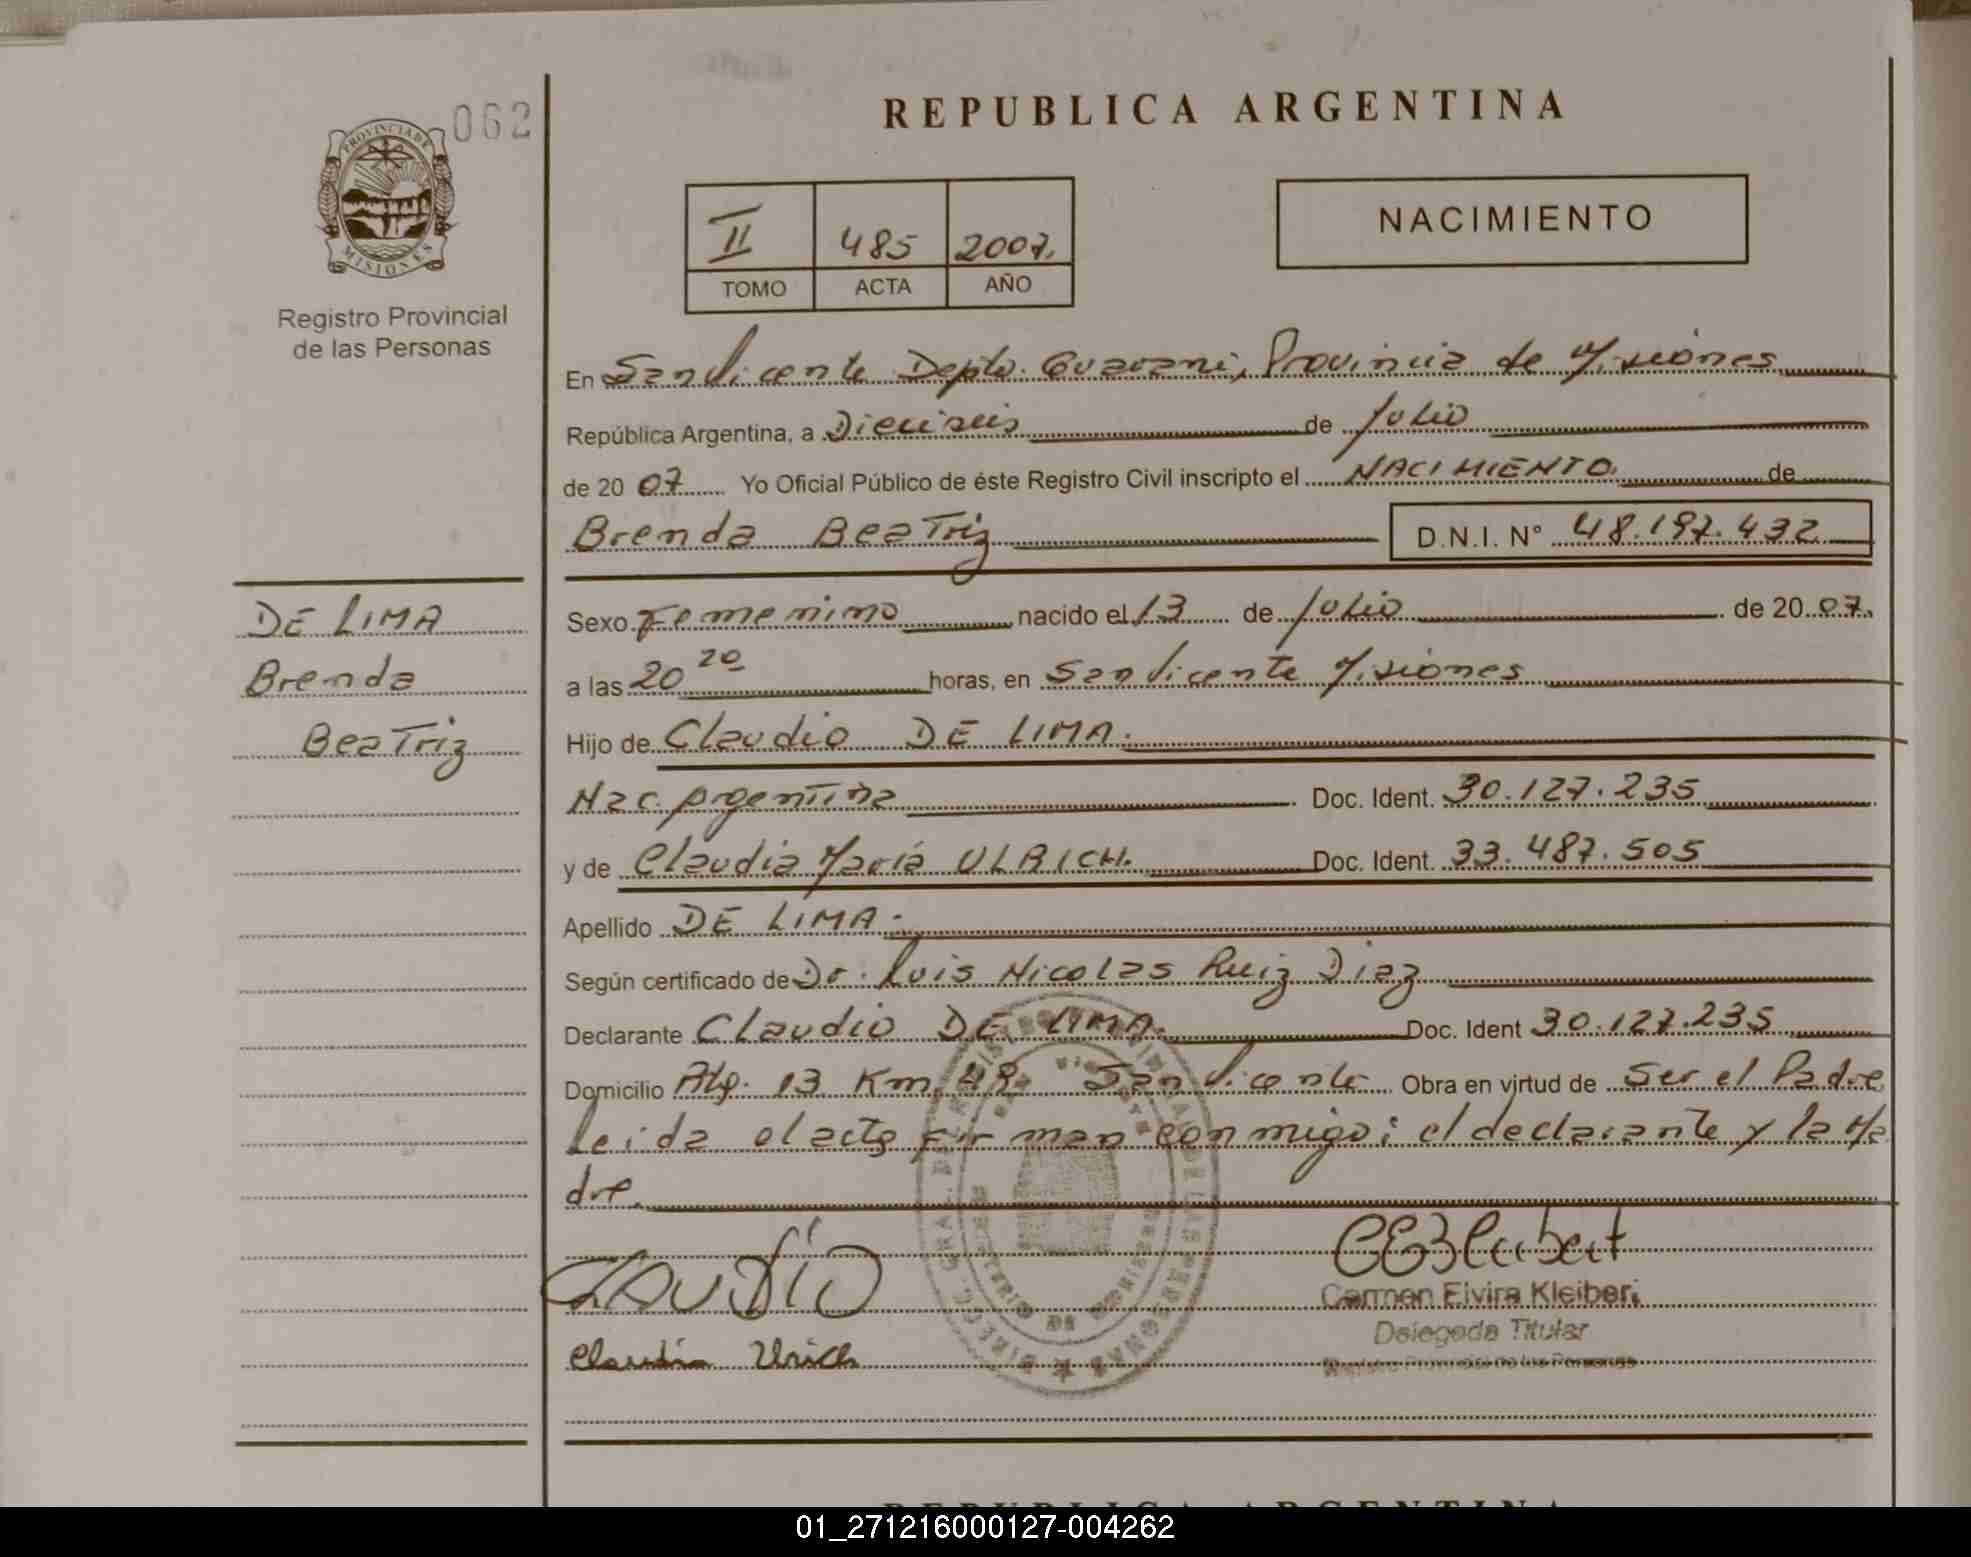 062
PROVINCIA DE
MISIONES
Registro Provincial
de las Personas
DE LIMA
Brenda
Beatriz
REPUBLICA ARGENTINA
II 485 2007.
TOMO ACTA AÑO
NACIMIENTO
En San Vicente Depto. Guarani, Provincia de Misiones
República Argentina, a Dieciseis de Julio
de 20 07 Yo Oficial Público de éste Registro Civil inscripto el NACIMIENTO. de
Brenda Beatriz D.N.I. N° 48.197.432
Sexo Femenino nacido el 13 de Julio de 20 07.
a las 20 20 horas, en San Vicente Misiones
Hijo de Claudio DE LIMA.
Nac. Argentina Doc. Ident. 30.127.235
y de Claudia María ULRICH. Doc. Ident. 33.487.505
Apellido DE LIMA.
Según certificado de Dr. Luis Nicolas Ruiz Diaz
Declarante Claudio DE LIMA. Doc. Ident 30.127.235
Domicilio Km, San Vicente Obra en virtud de Ser el Padre
Leida el acta firman conmigo: el declarante y la Ma
dre.
CLAUDIO
Claudia Ulrich
Carmen Elvira Kleibert
Delegada Titular
Registro Provincial de las Personas
REPUBLICA ARGENTINA
01_271216000127-004262